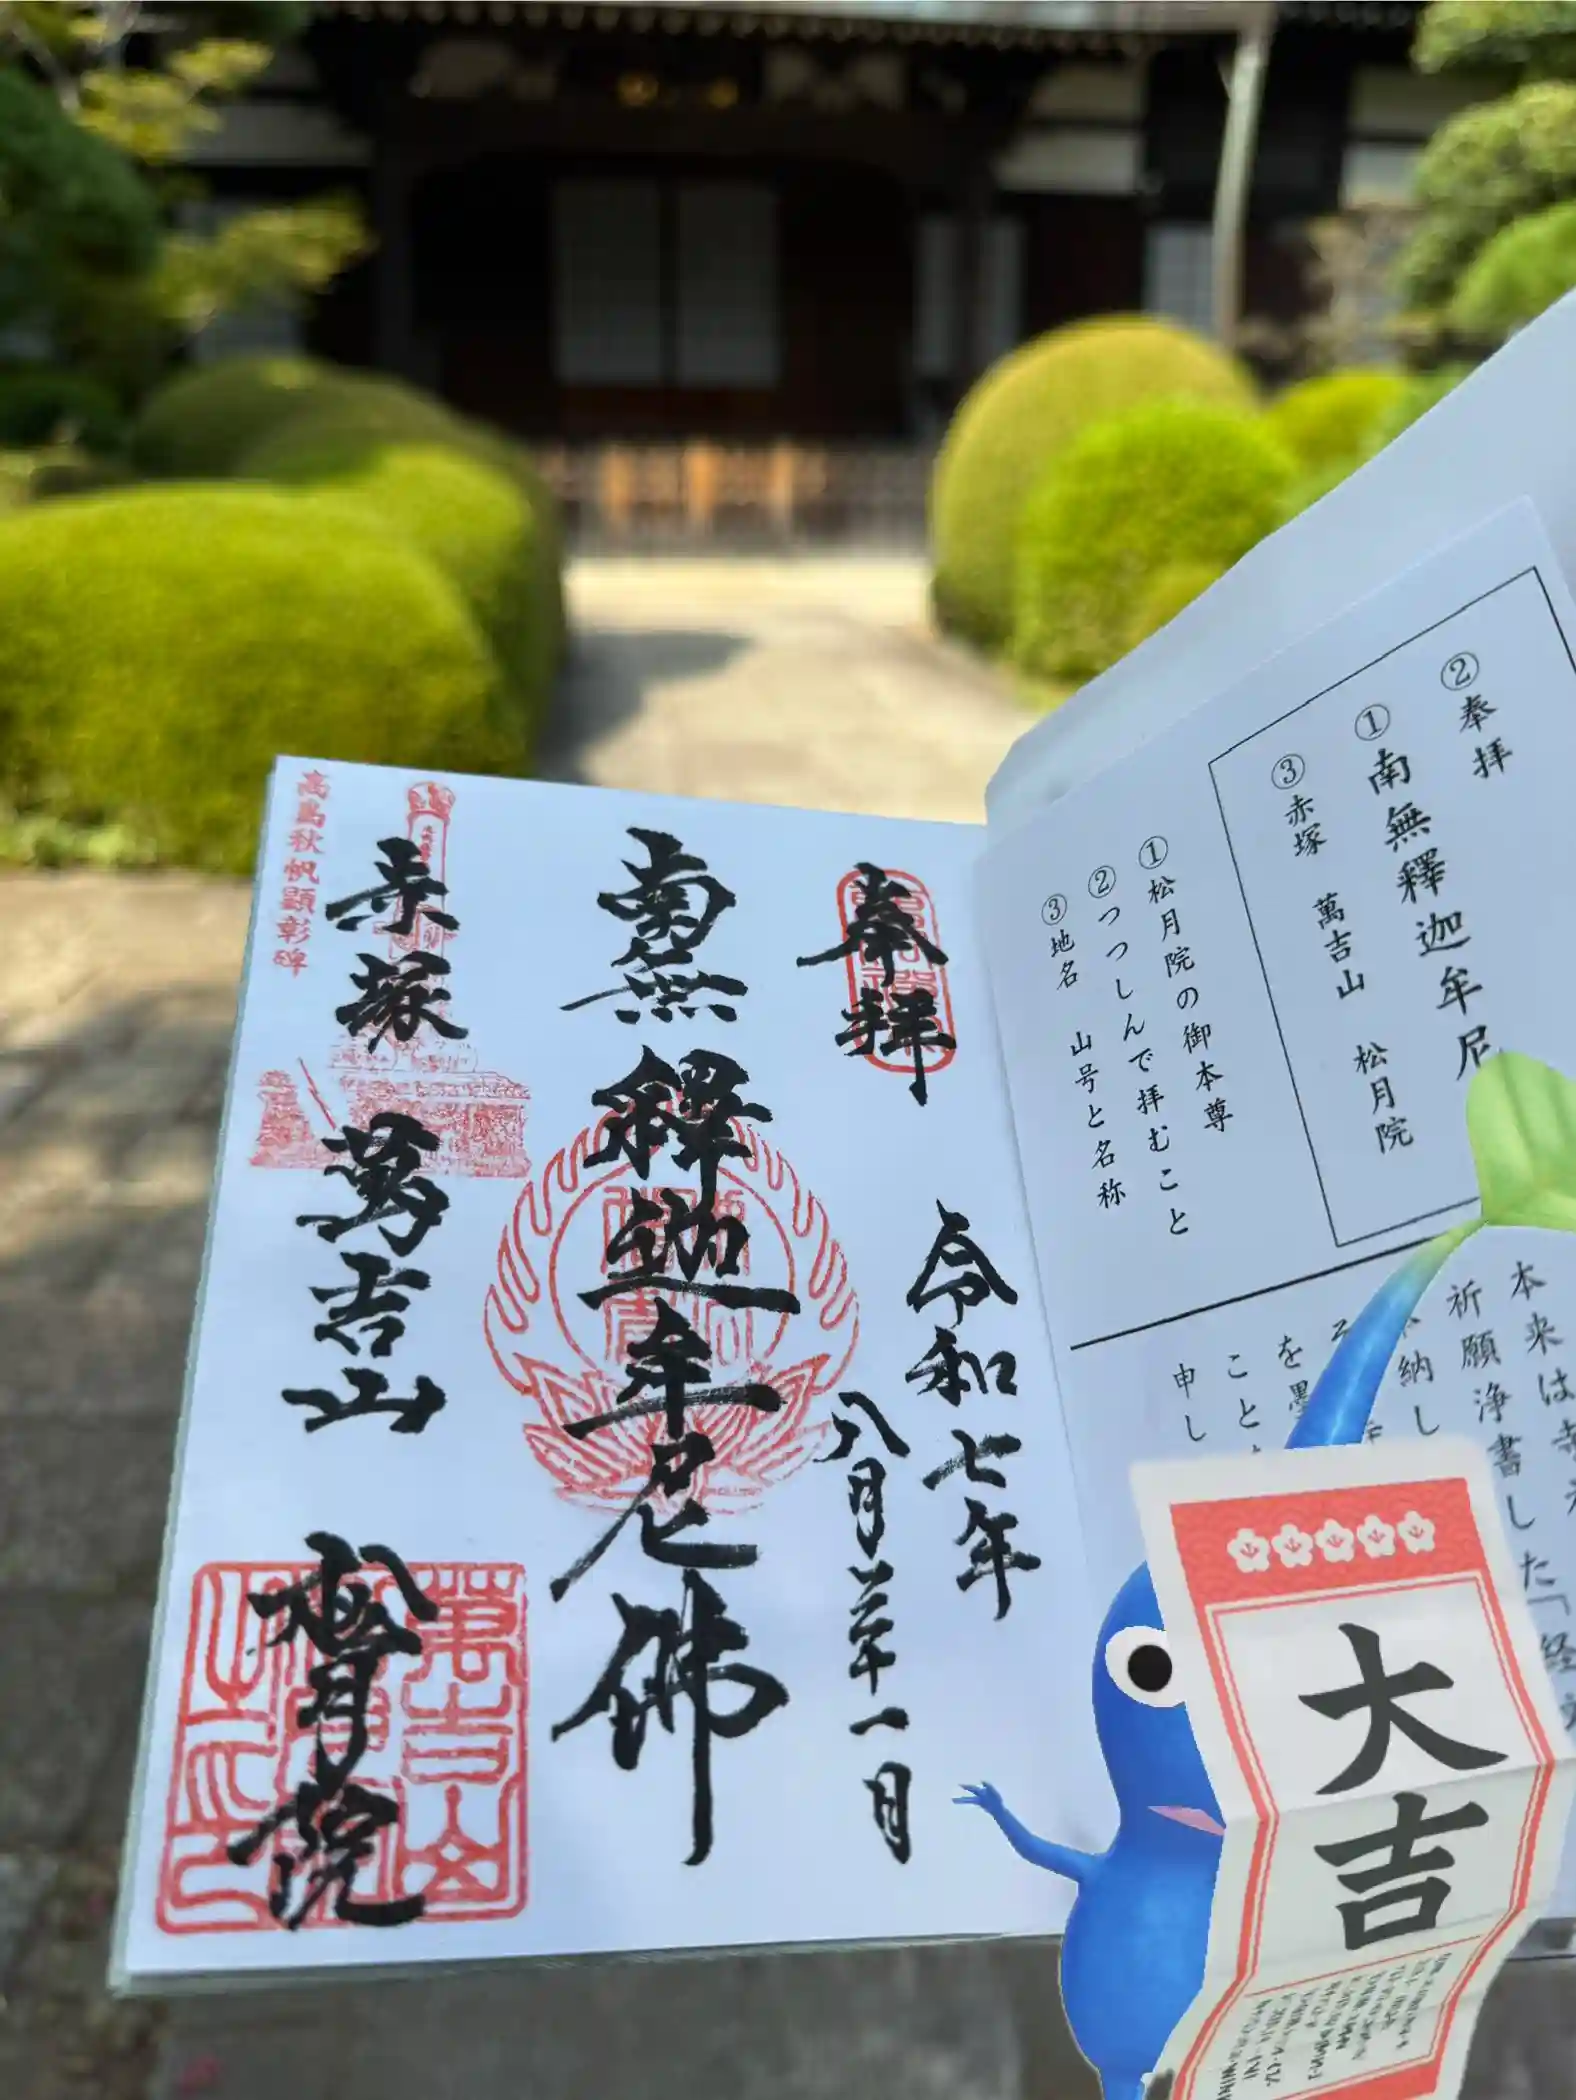 ② 奉拝
① 南無釋迦牟尼
③ 赤塚 萬吉山 松月院
① 松月院の御本尊
② つつしんで拝むこと
③ 地名 山号と名称
本来は
祈願浄書した「経
納し
を墨
こと
申し
奉拝
令和七年
八月二十一日
南無釋迦牟尼佛
赤塚 萬吉山 松月院
高島秋帆顕彰碑
萬吉山
大吉